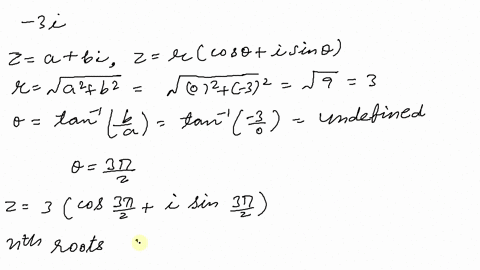 -3i
z = a + bi, z = r (cosθ + i sinθ)
r = √a²+b² = √(0)²+(-3)² = √9 = 3
θ = tan⁻¹(b/a) = tan⁻¹(-3/0) = undefined
θ = 3π/2
z = 3 (cos 3π/2 + i sin 3π/2)
nth roots :